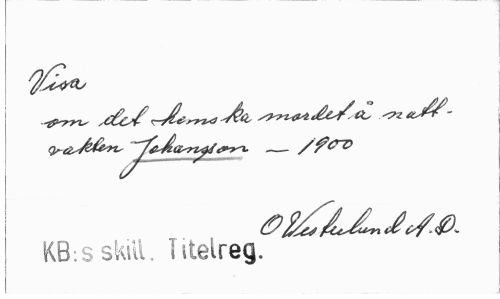 Visa
om det hemska mordet å natt-
vakten Johansson — 1900
O Westerlund A.D.
KB:s skill. Titelreg.